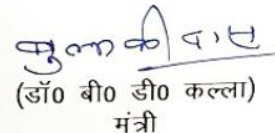 (डॉ0 बी0 डी0 कल्ला)
मंत्री